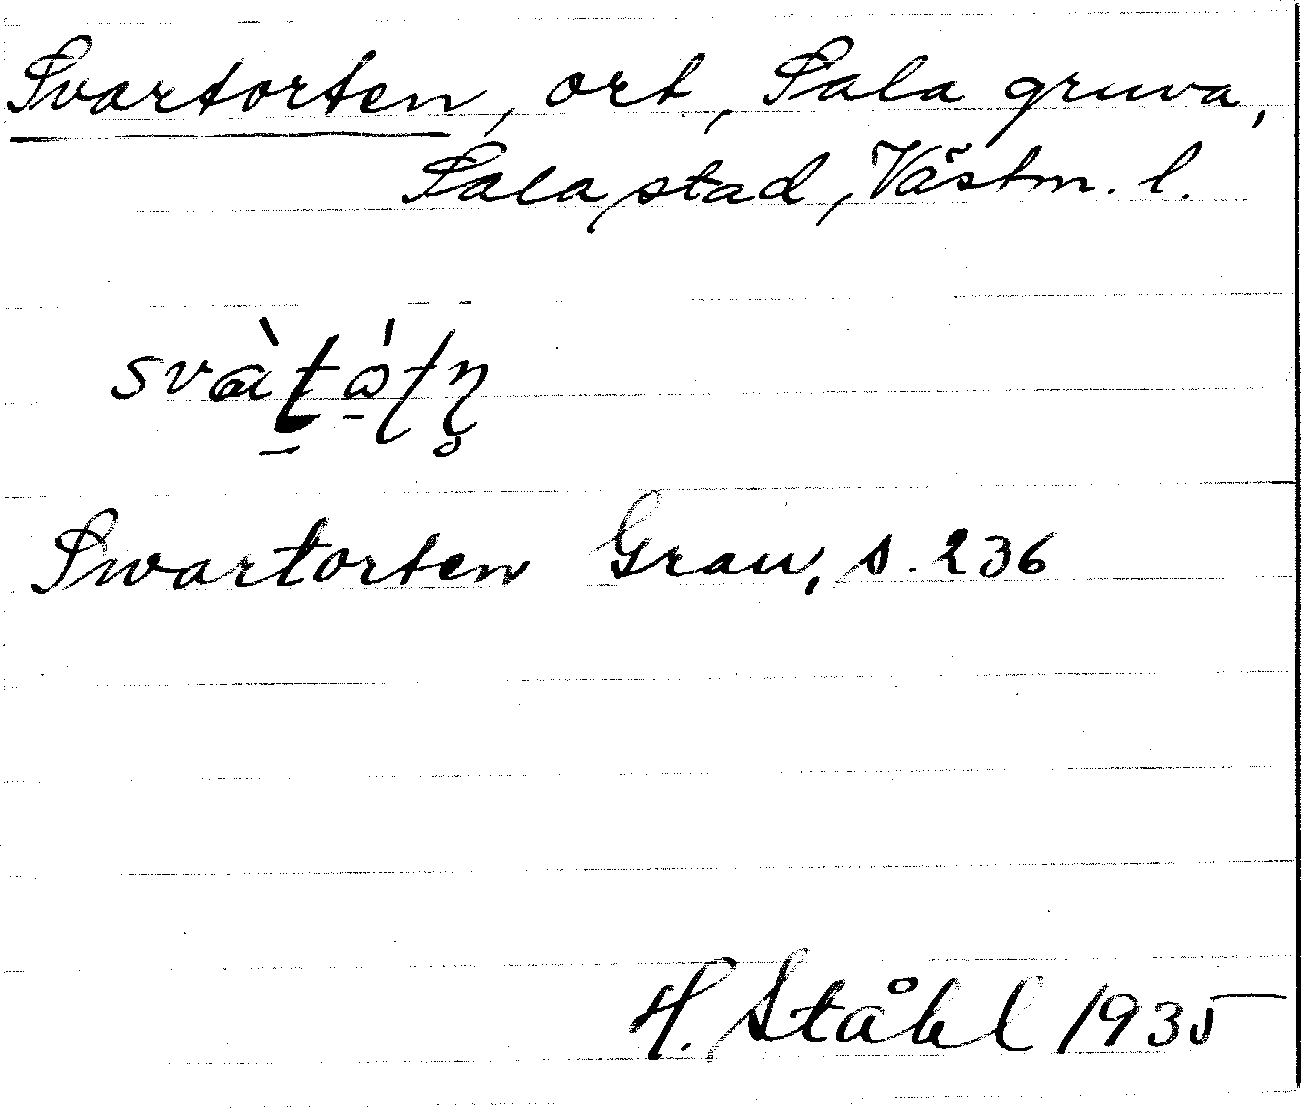 Svartorten, ort, Sala gruva,
Sala stad, Västm. l.
Swartorten Grau, s. 236
H. Ståhl 1935